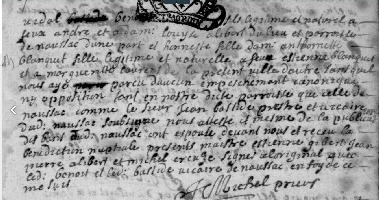 benoit fils legitime et naturel a
feux andre et a dam louyse alibert du lieu et parroisse
de naussac dune part et honneste fille dam anthoinette
blanquet fille legitime et naturelle a feux estienne blanquet
et a marguerite de la presant ville dautre sans que
nous ayt parcu daucun empêchement canonique
ny opposition tant en nostre dite parroisse que celle de
naussac comme le sieur jean baslide prestre et vicaire
dud naussac soubsigne nous atteste et mesme de la publica
des bans aud naussac ont espouse devant nous et receu la
benediction nuptiale presents maistre estienne gibert jean
pierre alibert et michel signes a loriginal avec
led benoit et led baslide vicaire de naussac en foy de ce
me suis
Michel prieur